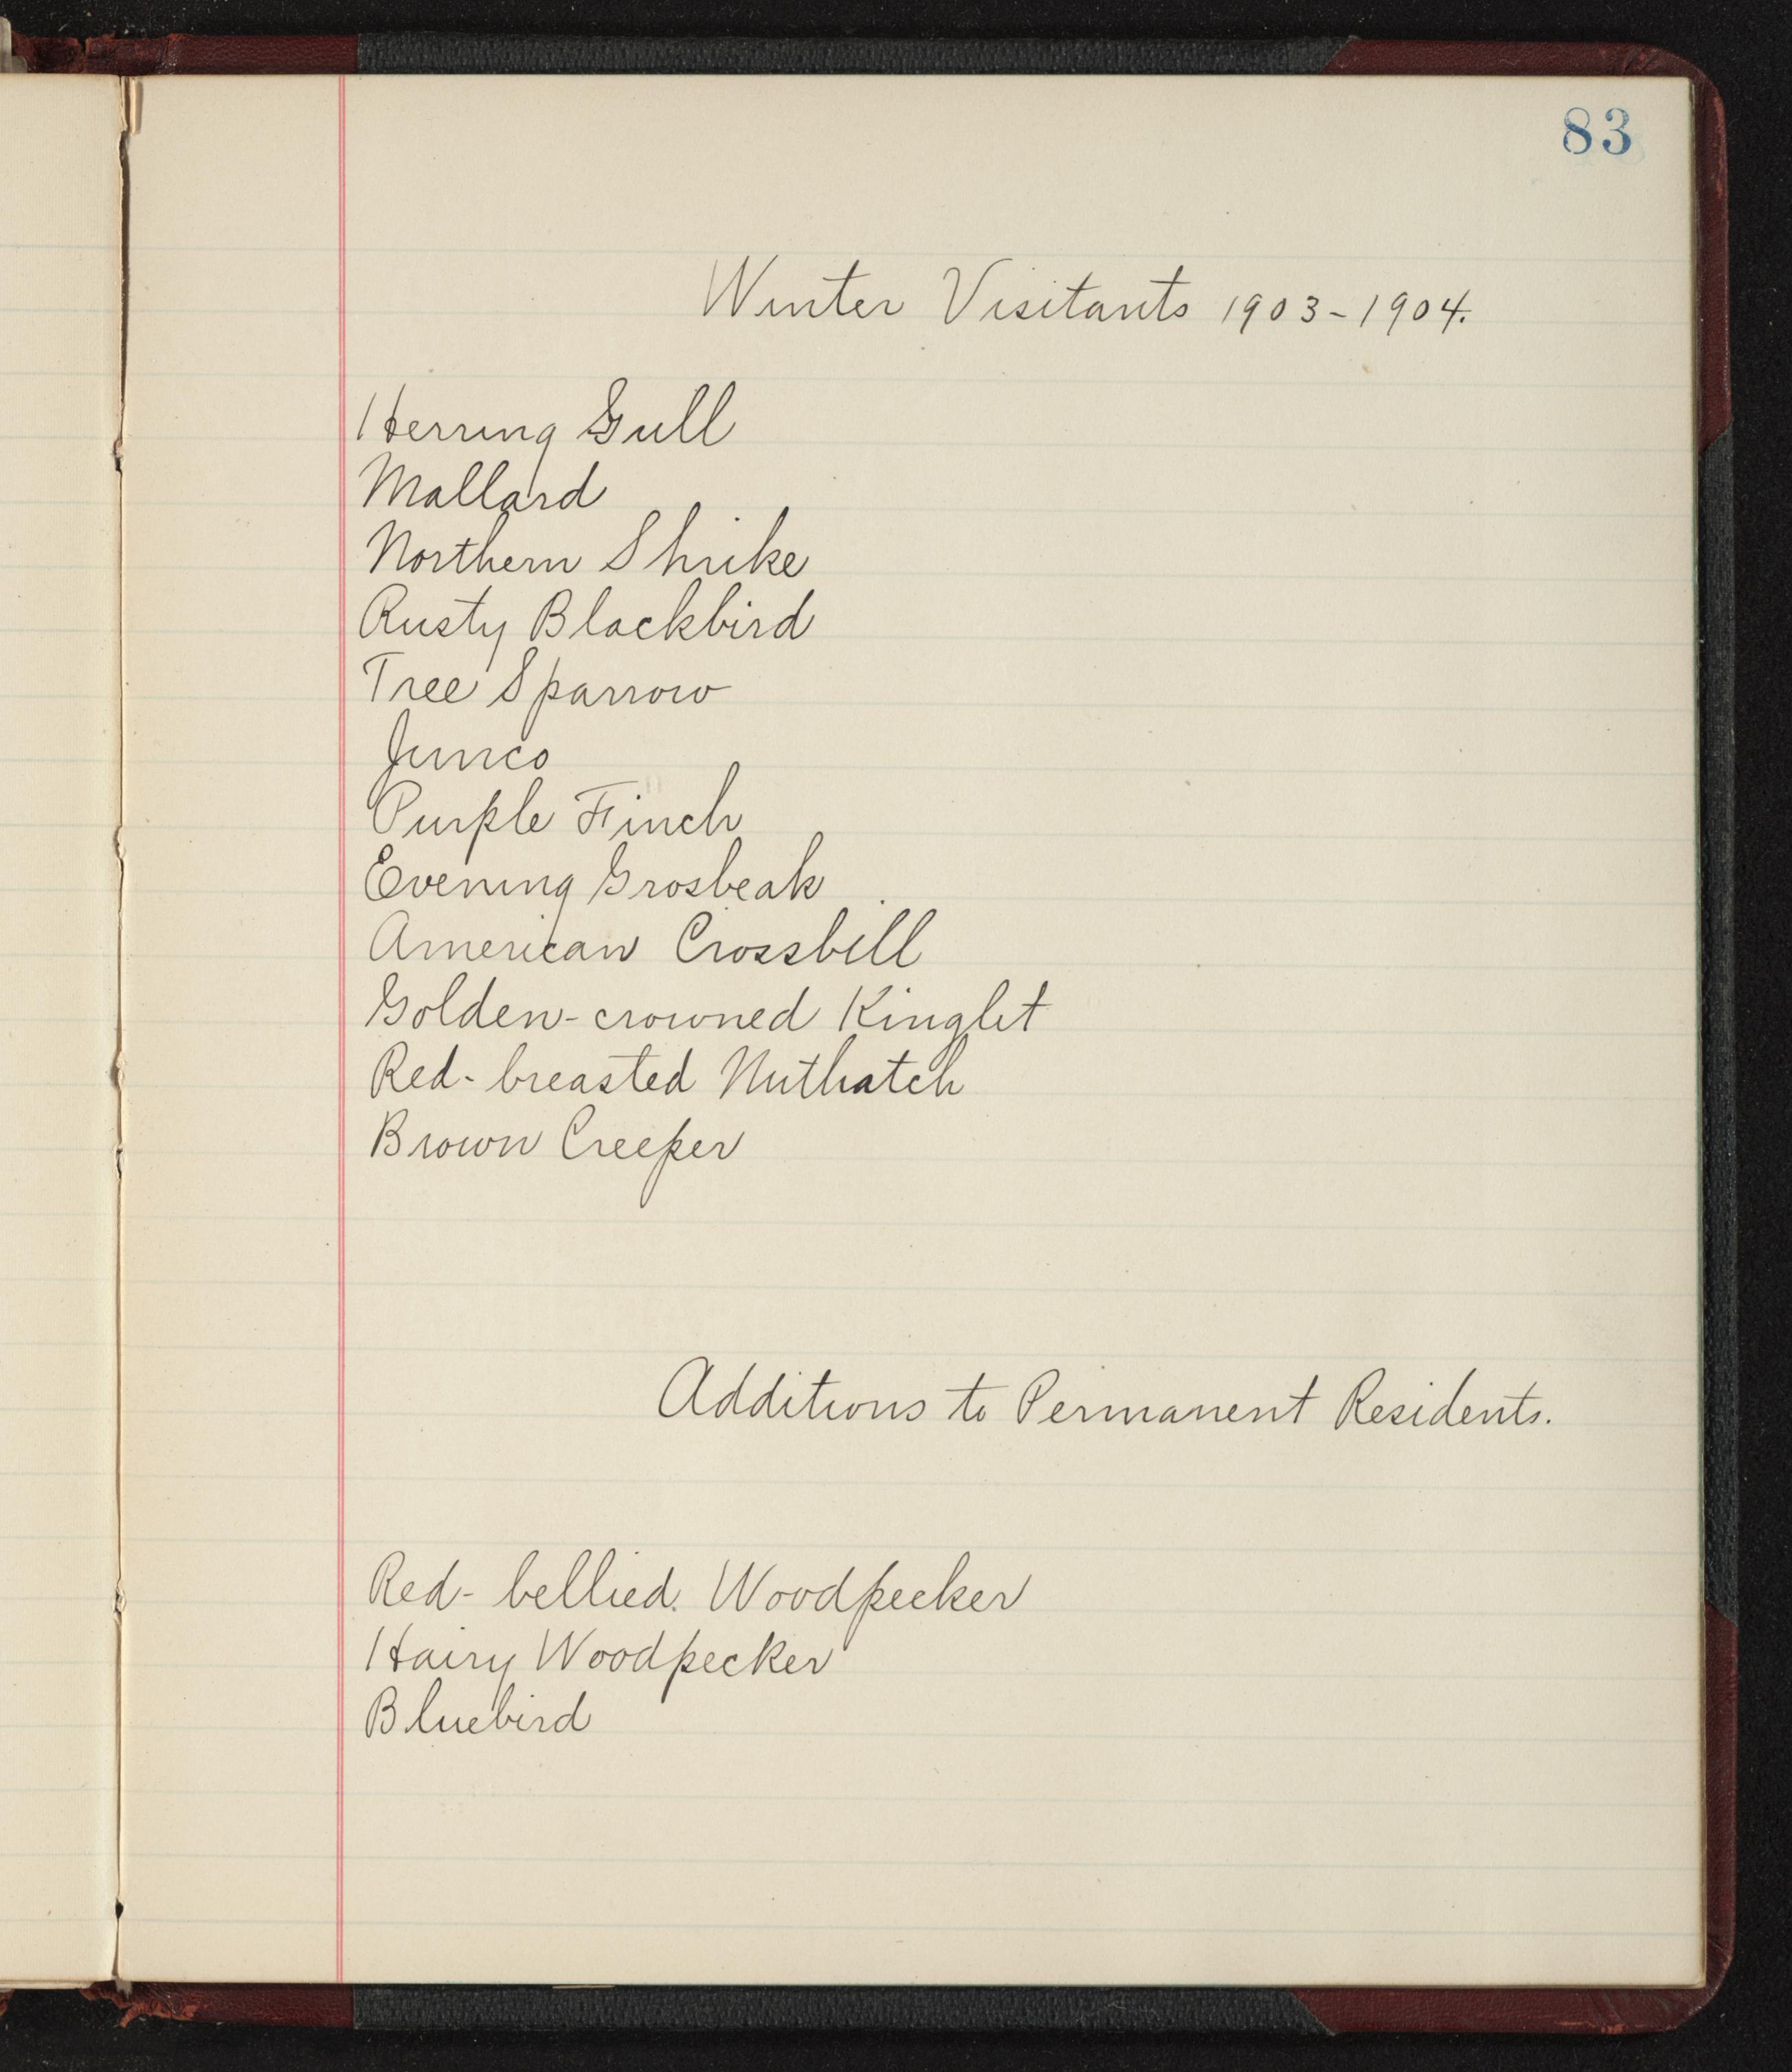 83
Winter Visitants 1903-1904.
Herring Gull
Mallard
Northern Shrike
Rusty Blackbird
Tree Sparrow
Junco
Purple Finch
Evening Grosbeak
American Crossbill
Golden-crowned Kinglet
Red-breasted Nuthatch
Brown Creeper
Additions to Permanent Residents.
Red-bellied Woodpecker
Hairy Woodpecker
Bluebird